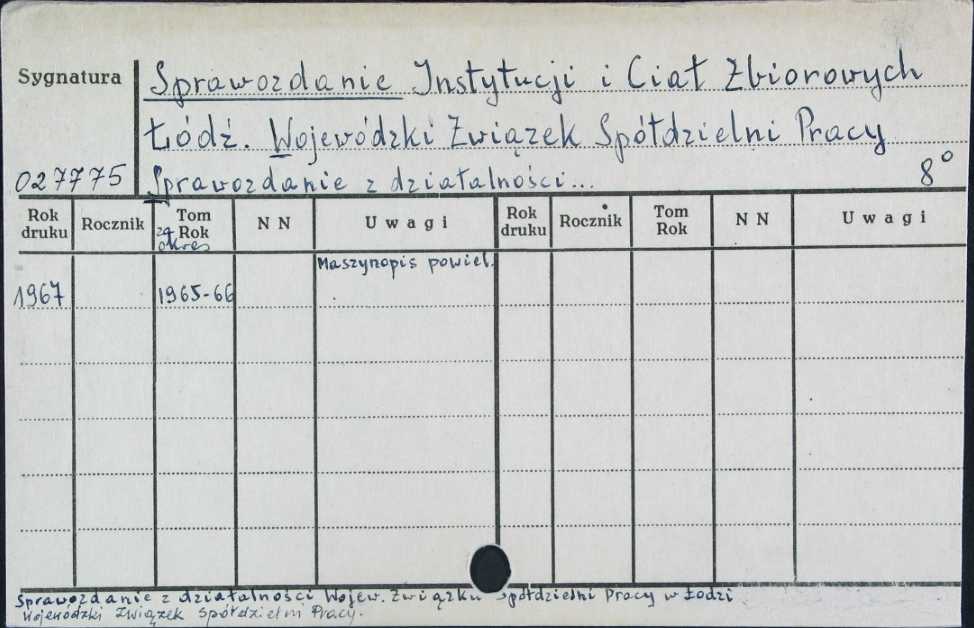 Sygnatura
Sprawozdanie Instytucji i Ciał Zbiorowych
Łódź. Wojewódzki Związek Spółdzielni Pracy
027775 Sprawozdanie z działalności... 8°
Rok druku Rocznik Tom Rok za okres N N Uwagi Rok druku Rocznik Tom Rok N N Uwagi
Maszynopis powiel.
1967 1965-66
Sprawozdanie z działalności Wojew. Związku Spółdzielni Pracy w Łodzi
Wojewódzki Związek Spółdzielni Pracy.